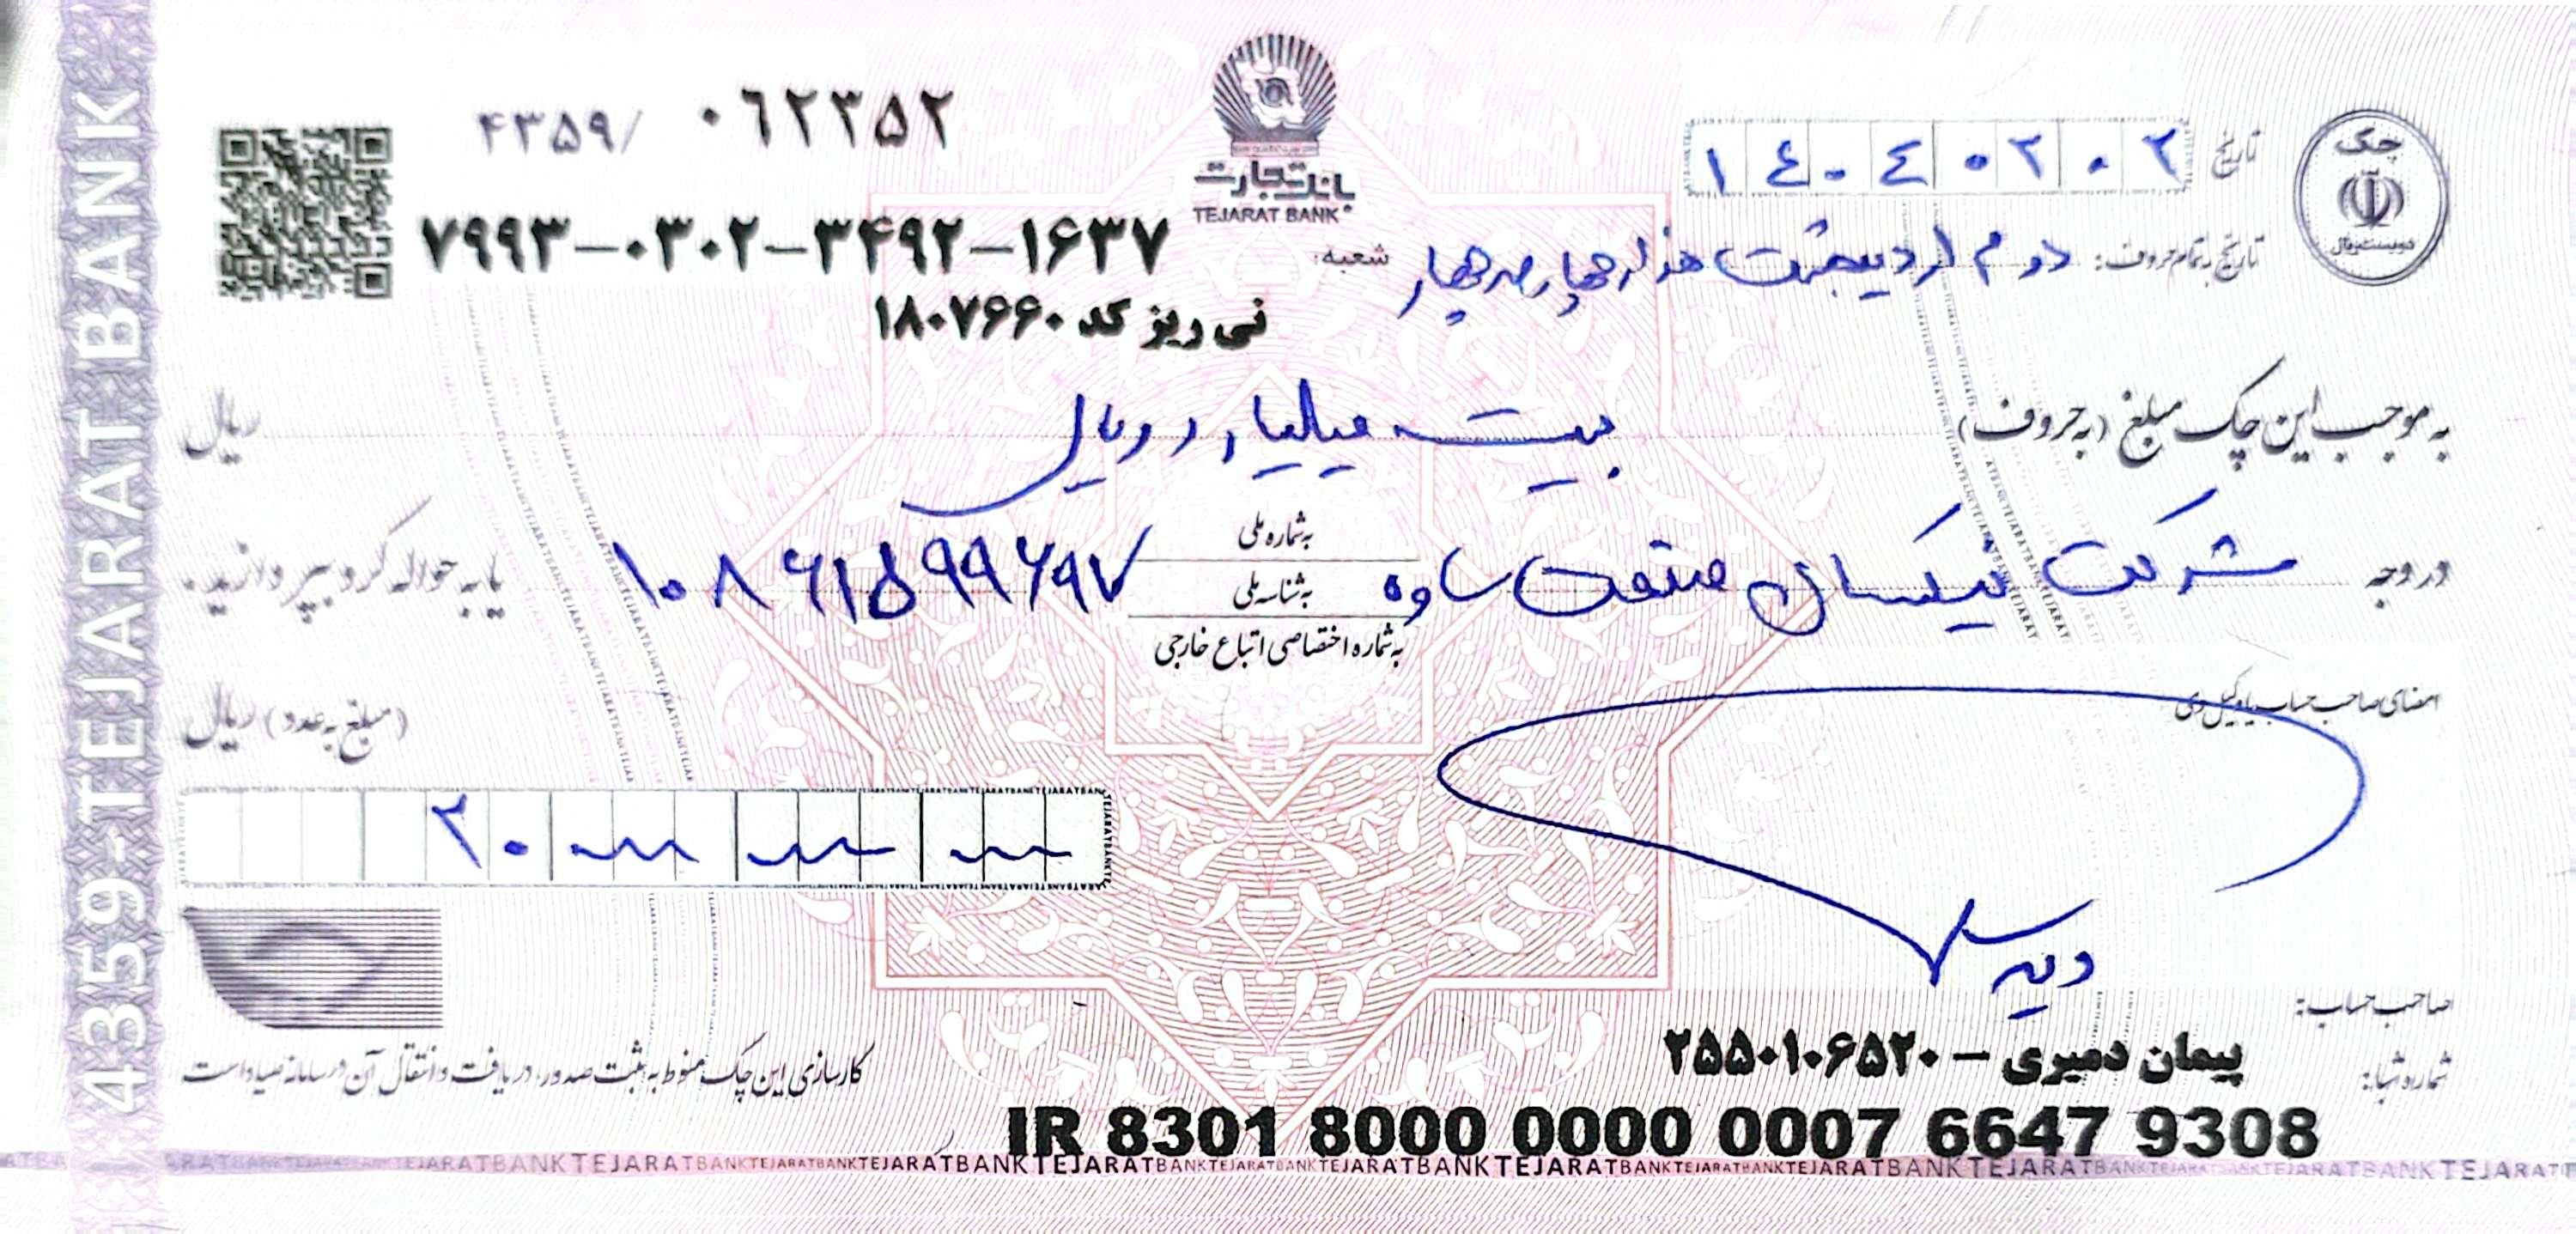 چک
دویست ریال
تاریخ ۱۴۰۴۰۲۰۲
تاریخ به تمام حروف: دوم اردیبهشت هزار چهارصد چهار
بانک تجارت
TEJARAT BANK
۴۳۵۹/ ۰۶۲۳۵۲
۷۹۹۳-۰۳۰۲-۳۴۹۲-۱۶۳۷
شعبه:
نی ریز کد ۱۸۰۷۶۶۰
به موجب این چک مبلغ (به حروف) بیست میلیارد ریال ریال
در وجه شرکت نیکسان صنعت ساوه به شماره ملی
به شناسه ملی ۱۰۸۶۱۵۹۹۶۹۷ یا به حواله کرد بپردازید.
به شماره اختصاصی اتباع خارجی
امضای صاحب حساب یا وکیل وی
(مبلغ به عدد) ریال
۲۰
صاحب حساب:
پیمان دمیری – ۲۵۵۰۱۰۶۵۲۰
شماره شبا:
IR 8301 8000 0000 0007 6647 9308
کارسازی این چک منوط به ثبت صدور، دریافت و انتقال آن در سامانه صیاد است
4359-TEJARAT BANK